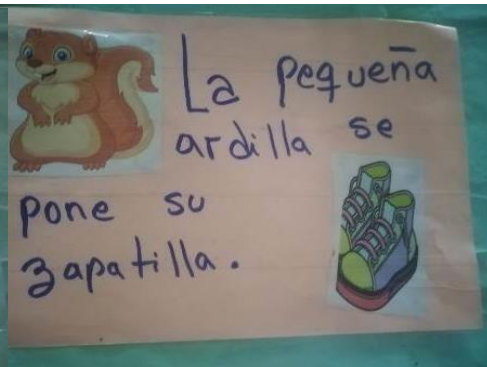 La pequeña
ardilla se
pone su
zapatilla.